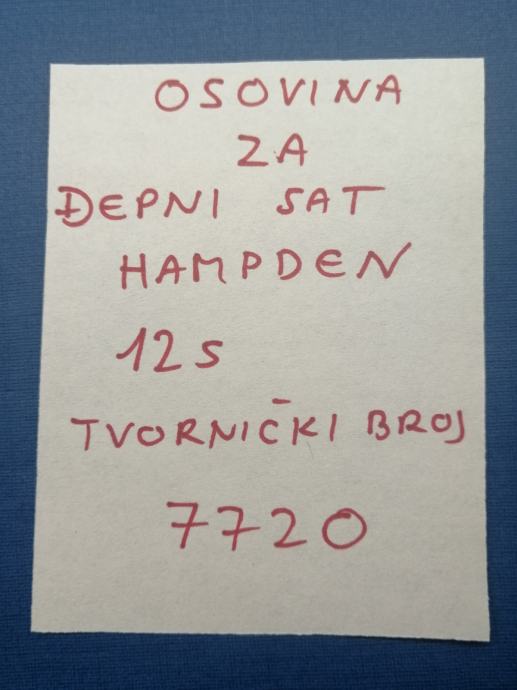 OSOVINA
ZA
ĐEPNI SAT
HAMPDEN
12 S
TVORNIČKI BROJ
7720